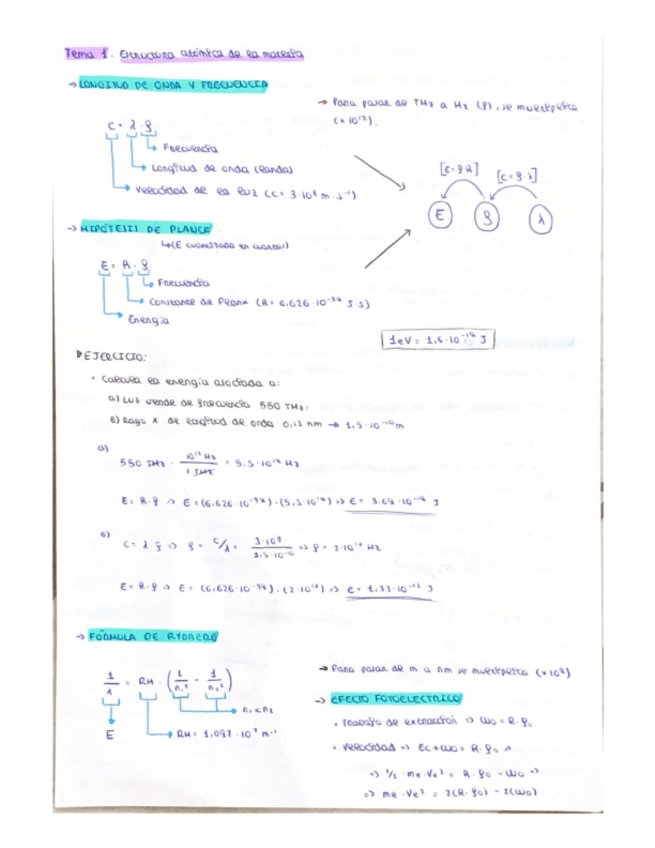 Tema 1. Estructura atómica de la materia
→ LONGITUD DE ONDA Y FRECUENCIA
→ Para pasar de THz a Hz (f), se multiplica
(× 10¹²).
c = λ · f
Frecuencia
Longitud de onda (landa)
Velocidad de la luz (c = 3·10⁸ m·s⁻¹)
[E = f·h] [c = f·λ]
E f λ
→ HIPÓTESIS DE PLANCK
↳ (E cuantizada en cuantos)
E = h · f
Frecuencia
Constante de Plank (h = 6,626·10⁻³⁴ J·s)
Energía
1eV = 1,6·10⁻¹⁹ J
EJERCICIO:
• Calcula la energía asociada a:
a) Luz verde de frecuencia 550 THz.
b) Rayo X de longitud de onda 0,15 nm → 1,5·10⁻¹⁰ m
a)
550 THz · 10¹² Hz / 1 THz = 5,5·10¹⁴ Hz
E = h·f => E = (6,626·10⁻³⁴)·(5,5·10¹⁴) => E = 3,64·10⁻¹⁹ J
b)
c = λ·f => f = c/λ = 3·10⁸ / 1,5·10⁻¹⁰ => f = 2·10¹⁸ Hz
E = h·f => E = (6,626·10⁻³⁴)·(2·10¹⁸) => E = 1,33·10⁻¹⁵ J
→ FÓRMULA DE RYDBERG
1/λ = RH · (1/n₁² - 1/n₂²)
n₁ < n₂
E
RH = 1,097·10⁷ m⁻¹
→ Para pasar de m a nm se multiplica (×10⁹)
→ EFECTO FOTOELECTRICO
• Trabajo de extracción => W₀ = h·f₀
• Velocidad => Ec + W₀ = h·f₀ =>
=> 1/2 · me · Ve² = h·f₀ - W₀ =>
=> me · Ve² = 2(h·f₀) - 2(W₀)